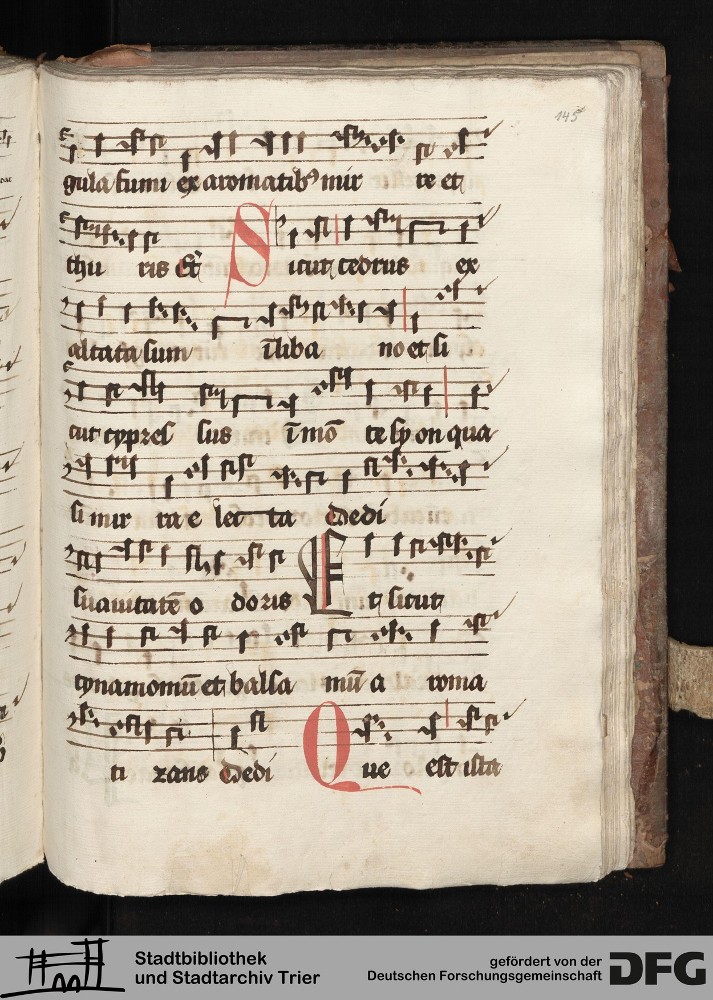 145
gula fumi ex aromatibꝰ mir re et
thu ris Et Sicut cedrus ex
altata sum ī liba no et si
cut cypres sus ī mō te syon qua
si mir ra e lec ta dedi
suauitatē o doris Et sicut
cynamomū et balsa mū a roma
ti zans dedi Que est ista
Stadtbibliothek
und Stadtarchiv Trier
gefördert von der
Deutschen Forschungsgemeinschaft
DFG